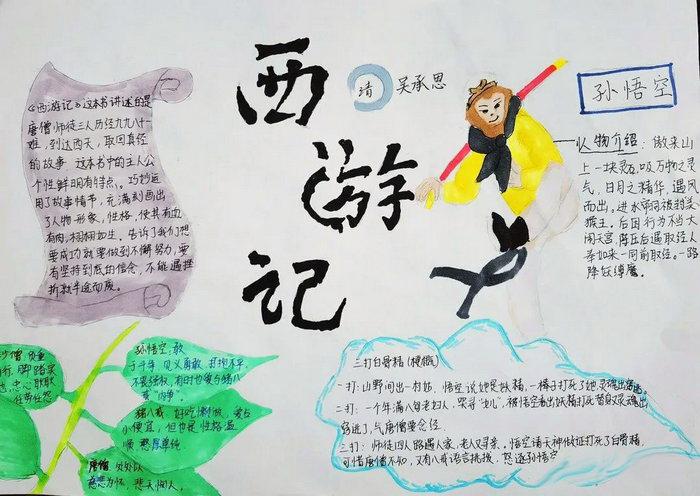 西游记
清
吴承恩
孙悟空
《西游记》这本书讲述的是
唐僧师徒三人历经九九八十一
难,到达西天,取回真经
的故事.这本书中的主人公
个性鲜明有特点。巧妙运
用了故事情节,充满刻画出
了人物形象,性格,使其有血
有肉,栩栩如生。告诉我们想
要成功就要做到不懈努力,要
有坚持到底的信念,不能遇挫
折就半途而废。
人物介绍:傲来山
上一块灵石,吸万物之灵
气,日月之精华,遇风
而出。进水帘洞被封美
猴王。后因行为不当大
闹天宫。降压后遇取经人
奉如来一同前取经。一路
降妖缚魔。
沙僧
忠心耿耿
任劳任怨
孙悟空:敢
于斗争 见义勇敢.打抱不平.
不畏强权,有时也爱与猪八
戒"内争"
猪八戒:好吃懒做,爱占
小便宜,但也是性格温
顺.憨厚单纯
唐僧
慈悲为怀,悲天悯人。
三打白骨精(梗概)
一打:山野间出一村姑,悟空说她是妖精,一棒子打死了她,灵魂出窍逃.
二打:一个年满八旬老妇人,哭寻"女儿",被悟空看出妖精打死
气唐僧要念经
三打:师徒四人路遇人家,老人又寻亲。悟空请天神做证打死了白骨精
可惜唐僧不知,又有八戒语言挑拨,怒逐孙悟空